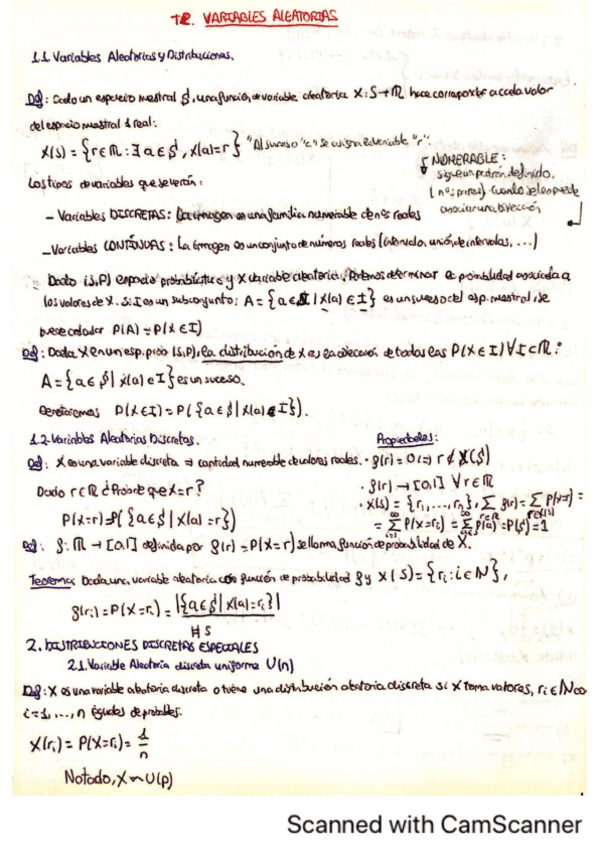 T2. VARIABLES ALEATORIAS
1.1. Variables Aleatorias y Distribuciones.
Def: Dado un espacio muestral S, una función de variable aleatoria X: S → ℝ hace corresponder a cada valor
del espacio muestral 1 real:
X(S) = {r ∈ ℝ : ∃ a ∈ S, X(a) = r} "Al suceso "a" se asigna la variable "r".
NUMERABLE:
sigue un patrón definido,
(nos pares) cuando se les puede
asociar una biyección
Los tipos de variables que se verán:
- Variables DISCRETAS: la imagen es una familia numerable de nos reales
- Variables CONTÍNUAS: La imagen es un conjunto de números reales (intervalo, unión de intervalos, ...)
Dado (S,P) espacio probabilístico y X variable aleatoria. Podemos determinar la probabilidad asociada a
los valores de X. Si I es un subconjunto: A = {a ∈ S | X(a) ∈ I} es un suceso del esp. muestral, se
puede calcular P(A) = P(X ∈ I)
Def: Dada X en un esp. prob (S,P), la distribución de X es la colección de todas las P(X ∈ I) ∀ I ⊂ ℝ:
A = {a ∈ S | X(a) ∈ I} es un suceso.
P(X ∈ I) = P({a ∈ S | X(a) ∈ I}).
1.2. Variables Aleatorias Discretas.
Propiedades:
Def: X es una variable discreta ⇒ cantidad numerable de valores reales.
· f(r) = 0 ⇔ r ∉ X(S)
Dado r ∈ ℝ ¿Prob de que X = r?
· f(r) → [0,1] ∀ r ∈ ℝ
P(X=r) = P({a ∈ S | X(a) = r})
· X(S) = {r₁, ..., rₙ}, Σ f(r) = Σ P(X=r) =
= Σ P(X=rᵢ) = Σ P(a) = P(S) = 1
Def: f: ℝ → [0,1] definida por f(r) = P(X=r) se llama función de probabilidad de X.
Teorema: Dada una variable aleatoria con función de probabilidad f y X(S) = {rᵢ : i ∈ N},
f(rᵢ) = P(X=rᵢ) = |{a ∈ S | X(a) = rᵢ}|
# S
2. DISTRIBUCIONES DISCRETAS ESPECIALES
2.1. Variable Aleatoria discreta uniforme U(n)
Def: X es una variable aleatoria discreta o tiene una distribución aleatoria discreta si X toma valores, rᵢ ∈ N con
i = 1, ..., n iguales de probables.
X(rᵢ) = P(X=rᵢ) = 1/n
Notado, X ~ U(p)
Scanned with CamScanner